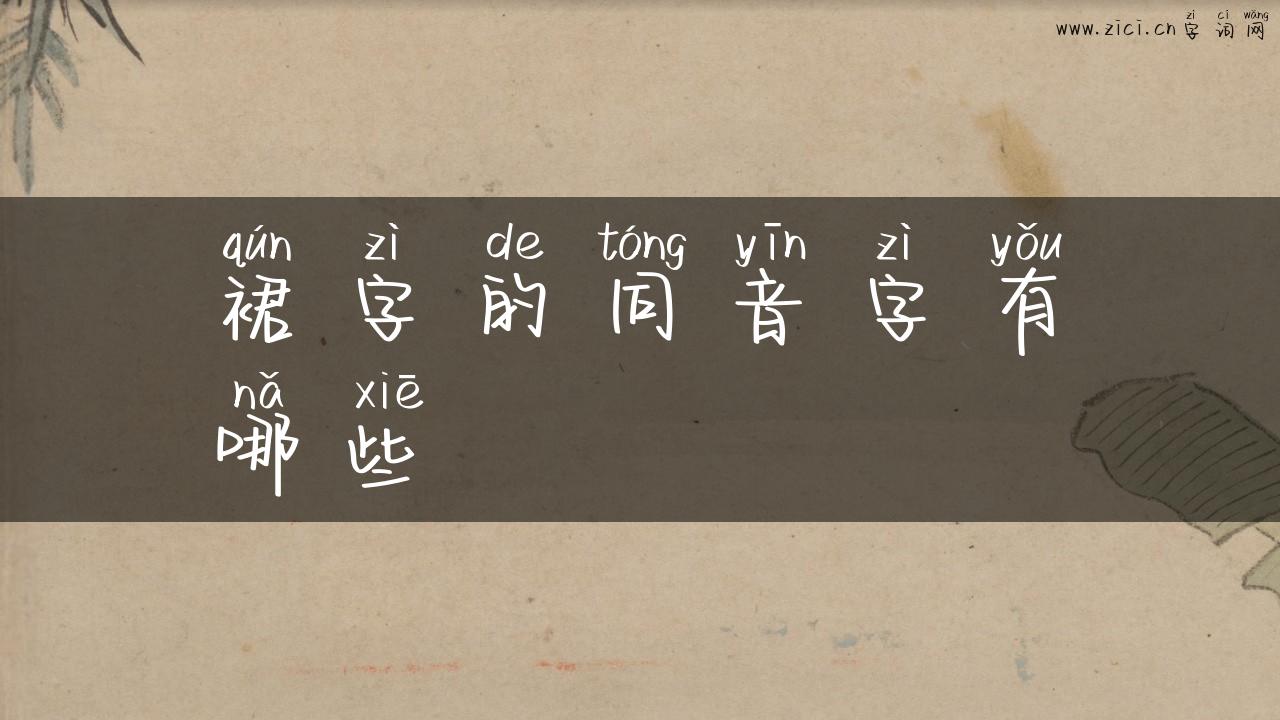 zì cí wǎng
www.zici.cn 字词网
qún zì de tóng yīn zì yǒu
裙字的同音字有
nǎ xiē
哪些